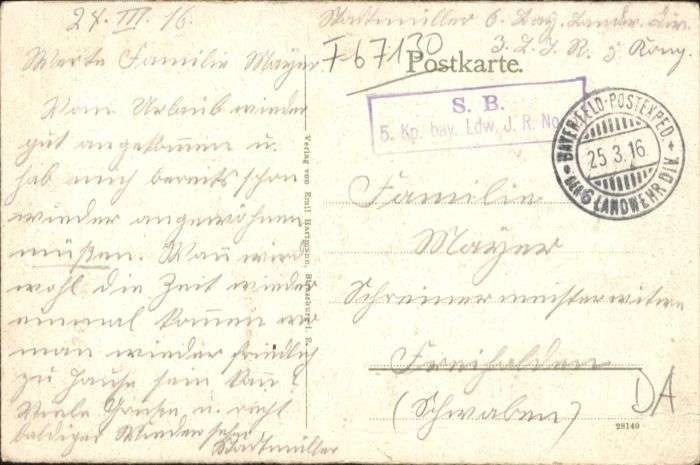 24. III. 16.
Stadtmüller 6. Bay. Landw. Div.
3. L. I. R. 5 Komp.
F 67130
Werte Familie Mayer
Postkarte.
S. B.
5. Kp. bay. Ldw. J. R. No
BAYER. FELD-POSTEXPED.
25.3.16.
DER 6 LANDWEHR DIV.
Vom Urlaub wieder
gut angekommen u.
hab mich bereits schon
wieder angewöhnen
müßen. Wann wird
wohl die Zeit wieder
einmal kommen wo
man wieder friedlich
zu Hause sein kann?
Viele Grüße u. recht
baldiges Wiedersehen
Stadtmüller
Verlag von Emil Hartmann, Strassburg i. E.
Familie
Mayer
Schreinermeisterwitwe
Freihalden
(Schwaben)
28140
DA